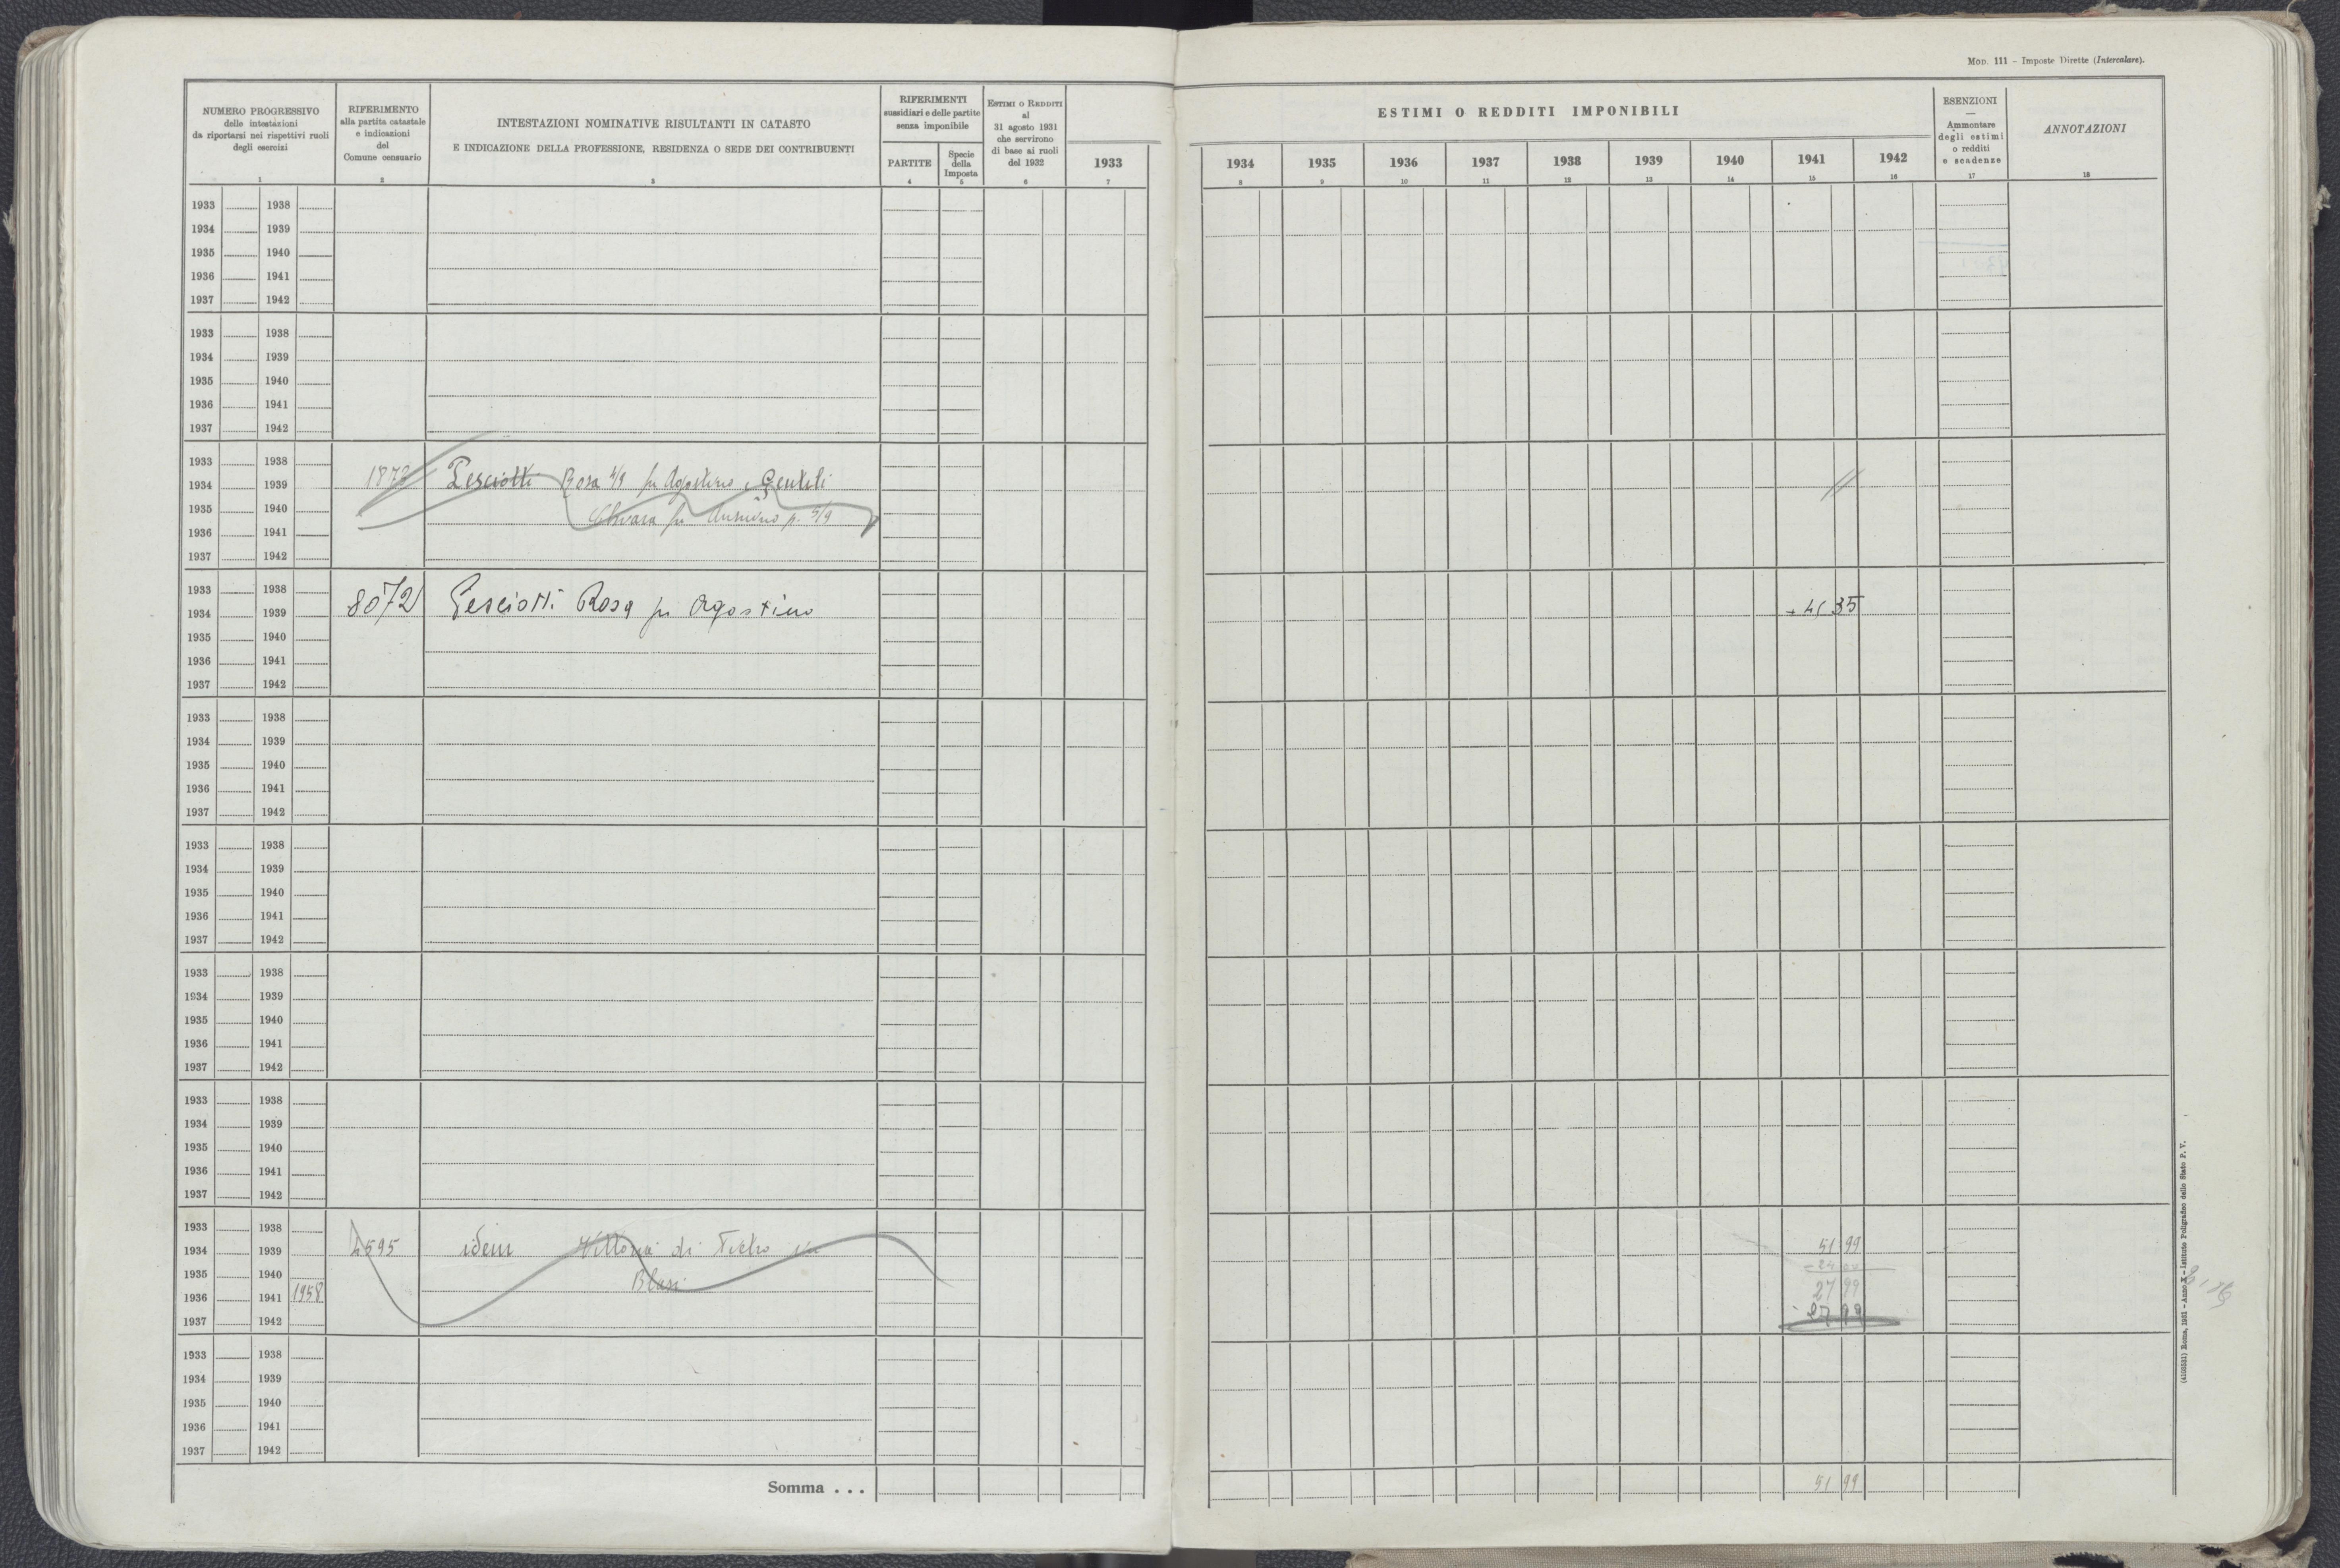 Mod. 111 - Imposte Dirette (Intercalare).
NUMERO PROGRESSIVO
delle intestazioni
da riportarsi nei rispettivi ruoli
degli esercizi
1
RIFERIMENTO
alla partita catastale
e indicazioni
del
Comune censuario
2
INTESTAZIONI NOMINATIVE RISULTANTI IN CATASTO
E INDICAZIONE DELLA PROFESSIONE, RESIDENZA O SEDE DEI CONTRIBUENTI
3
RIFERIMENTI
sussidiari e delle partite
senza imponibile
PARTITE
4
Specie
della
Imposta
5
Estimi o Redditi
al
31 agosto 1931
che servirono
di base ai ruoli
del 1932
6
1933
7
ESTIMI O REDDITI IMPONIBILI
1934 1935 1936 1937 1938 1939 1940 1941 1942
8 9 10 11 12 13 14 15 16
ESENZIONI
—
Ammontare
degli estimi
o redditi
e scadenze
17
ANNOTAZIONI
18
1933 1938
1934 1939
1935 1940
1936 1941
1937 1942
1933 1938
1934 1939
1935 1940
1936 1941
1937 1942
1933 1938
1934 1939 1873 Pesciotti Rosa 4/9 fu Agostino e Gentili
1935 1940 Chiara fu p. 5/9
1936 1941
1937 1942
1933 1938
1934 1939 8072 Pesciotti Rosa fu Agostino 35
1935 1940
1936 1941
1937 1942
1933 1938
1934 1939
1935 1940
1936 1941
1937 1942
1933 1938
1934 1939
1935 1940
1936 1941
1937 1942
1933 1938
1934 1939
1935 1940
1936 1941
1937 1942
1933 1938
1934 1939
1935 1940
1936 1941
1937 1942
1933 1938
1934 1939 4595 idem Vittoria di Pietro in 51 99
- 24 00
1935 1940 Blasi 27 99
1936 1941 1958 - 27 99
1937 1942
1933 1938
1934 1939
1935 1940
1936 1941
1937 1942
Somma . . . 51 99
(4108531) Roma, 1931 - Anno X - Istituto Poligrafico dello Stato P. V.